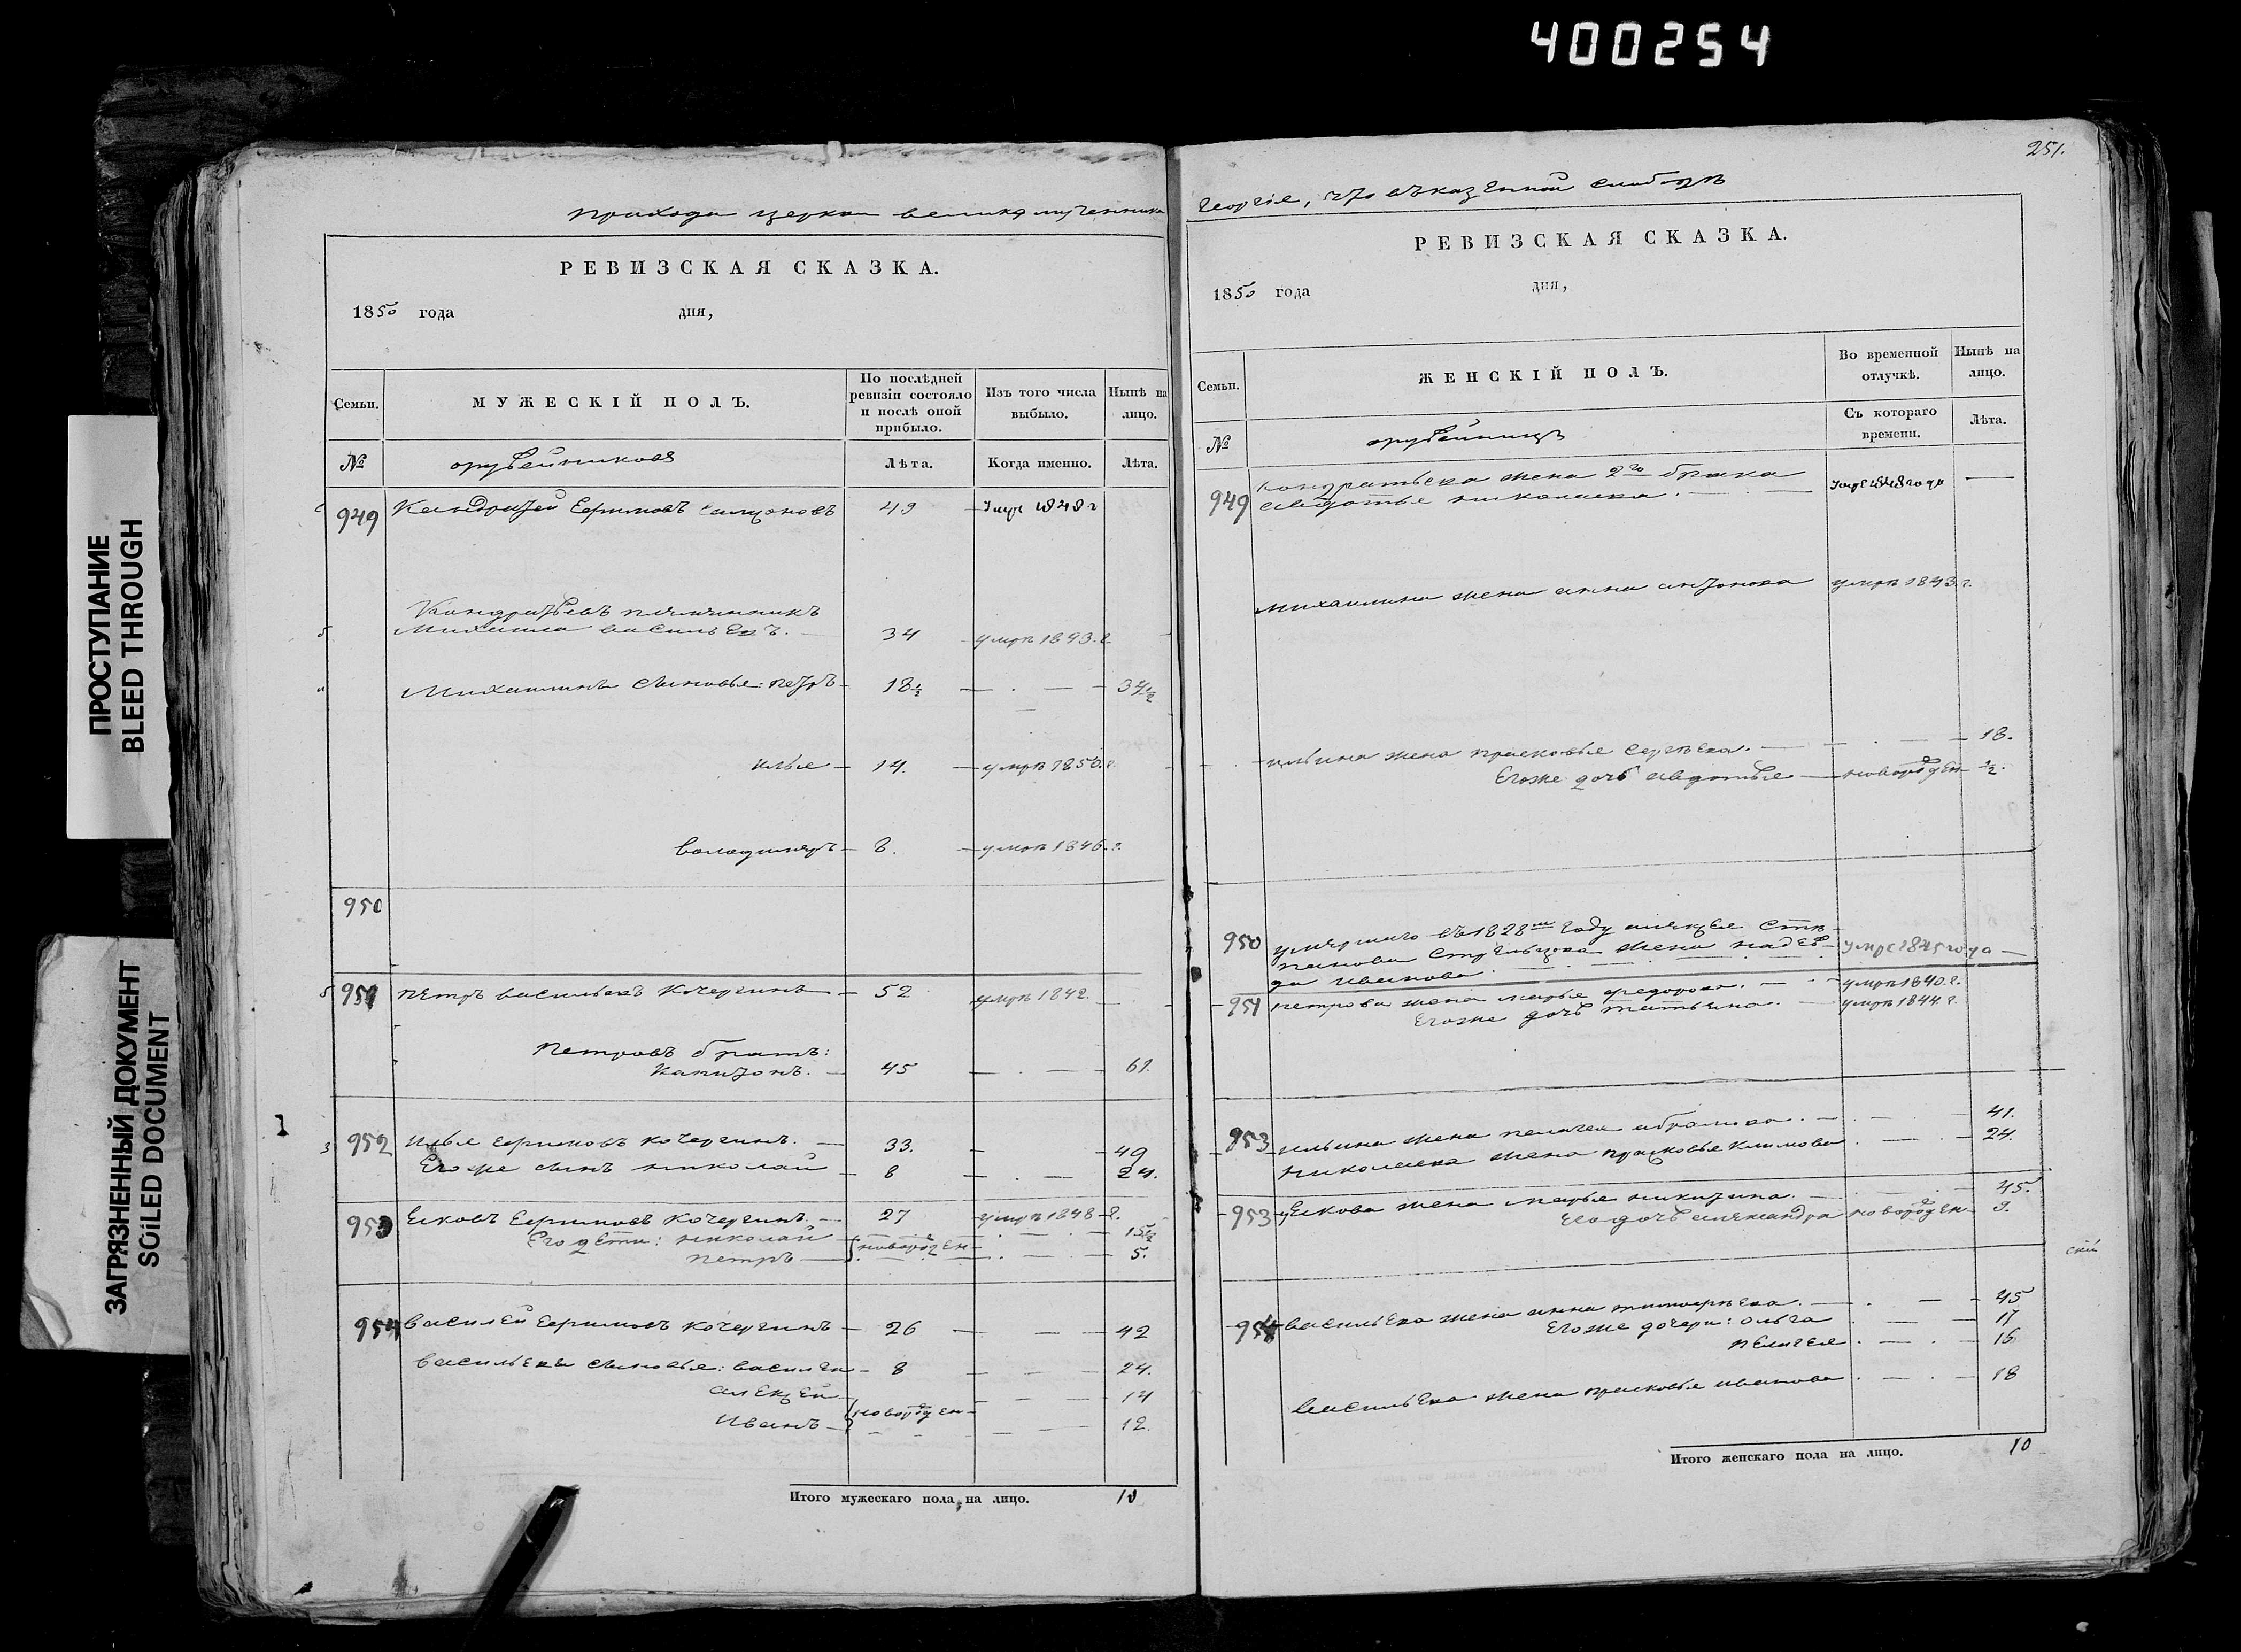 400254
251.
прихода церкви великомученика
Георгія, что въ казенной слободѣ
РЕВИЗСКАЯ СКАЗКА.
1850 года дня,
Семьи.
МУЖЕСКІЙ ПОЛЪ.
По послѣдней ревизіи состояло и послѣ оной прибыло.
Изъ того числа выбыло.
Нынѣ на лицо.
№
оружейниковъ
Лѣта.
Когда именно.
Лѣта.
949 Кандратей Ефимовъ 49 умре 1848 г
Кондратьевъ племянникъ
Михаила васильевъ. 34 умрѣ 1843. г.
Михаилины сыновья: петръ 18½ 34½
илья 14. умрѣ 1850. г.
володимеръ 8. умрѣ 1846. г.
950
951 петръ васильевъ Кочергинъ 52 умрѣ 1842.
петровъ братъ:
Капитонъ. 45 61.
952 Илья Ефимовъ кочергинъ. 33. 49
Его же сынъ николай 8 24.
953 Яковъ Ефимовъ Кочергинъ. 27 умрѣ 1848 г.
Его дети: николай новорожден 15½
петръ 5.
954 василей Ефимовъ кочергинъ 26 42
васильевы сыновья: василей 8 24.
алексей новорожден 14
Иванъ 12.
Итого мужескаго пола на лицо. 10
РЕВИЗСКАЯ СКАЗКА.
1850 года дня,
Семьи.
ЖЕНСКІЙ ПОЛЪ.
Во временной отлучкѣ.
Нынѣ на лицо.
Съ котораго времени.
Лѣта.
№
оружейницъ
949 кондратьева жена 2го брака умре 1848 года
авдотья николаева.
михаилина жена анна антонова умрѣ 1843. г.
ильина жена прасковья сергѣева. 18.
Егоже дочь авдотья новорожден ½.
950 умершаго въ 1828м году алексея Сте
панова Стрельцова жена надеж умре 1845 года
да иванова.
951 петрова жена марья федорова. умрѣ 1840. г.
Егоже дочь татьяна. умрѣ 1844. г.
953 ильина жена пелагея абрамова. 41.
николаева жена прасковья Климова 24.
953 Якова жена марья никитина. 45.
Его дочь александра новорожден 9.
скій
954 васильева жена анна тимофѣева. 45
Егоже дочери: ольга 17
пелагея 16
васильева жена прасковья иванова 18
Итого женскаго пола на лицо. 10
ПРОСТУПАНИЕ
BLEED THROUGH
ЗАГРЯЗНЕННЫЙ ДОКУМЕНТ
SOILED DOCUMENT